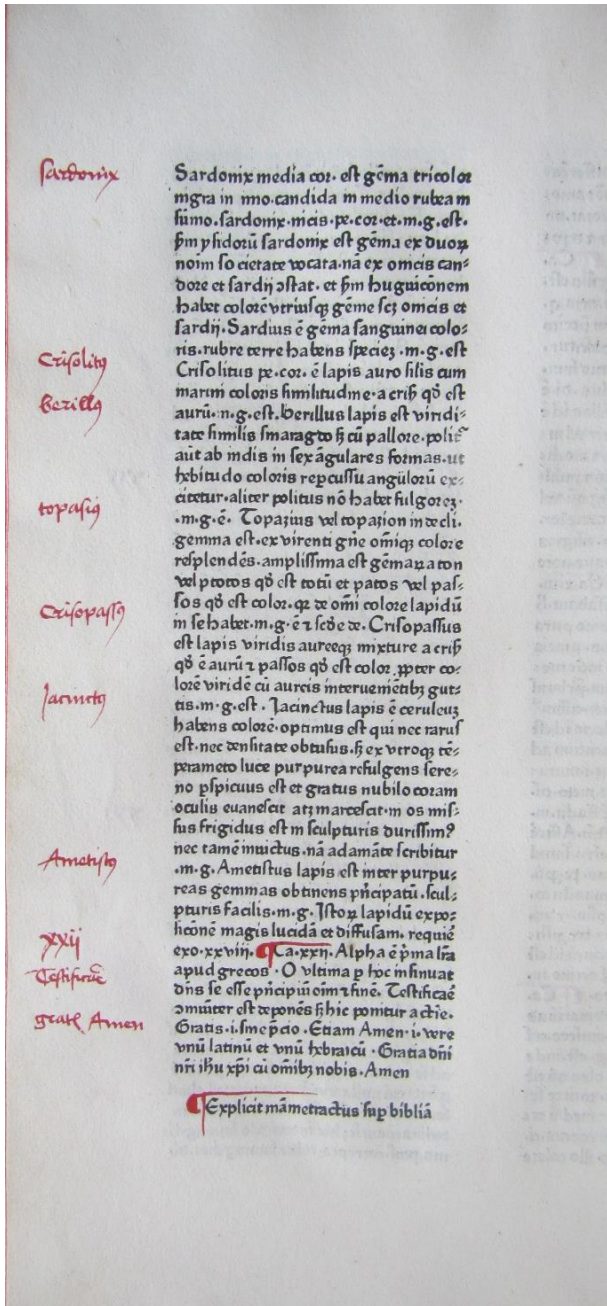 sardonix
Sardonix media cor. est gēma tricolor
nigra in imo.candida in medio rubea in
sūmo.sardonix.nicis.pe.cor.et.m.g.est.
ẜm ysidorū sardonix est gēma ex duoꝝ
noīm so cietate vocata.nā ex onicis can⸗
dore et sardij ↄstat. et ẜm huguiconem
habet colorē vtriusqꝫ gēme scꝫ onicis et
sardij.Sardius ē gēma sanguinei colo⸗
ris.rubre terre habens specieꝫ .m.g.est
Crisolitꝰ
Crisolitus pe.cor. ē lapis auro silis cum
marini coloris similitudine.a crisꝭ qđ est
berillꝰ
aurū.n.g.est.berillus lapis est viridi⸗
tate similis smaragdo sꝫ cū pallore.polit᷑
aūt ab indis in sex āgulares formas.ut
hebitudo coloris reꝑcussu angulorū ex⸗
citetur.aliter politus nō habet fulgoreꝫ.
topasiꝰ
.m.g.ē. Topazius vel topazion in decli.
gemma est.ex virenti gn̄e om̄iqꝫ colore
resplendēs.amplissima est gēmaꝝ a ton
vel ptotos qđ est totū et patos vel pas⸗
sos qđ est color.qꝛ de om̄i colore lapidū
Crisopassꝰ
in se habet.m.g.ē ⁊ scđe de. Crisopassus
est lapis viridis aureeqꝫ mixture a crisꝭ
qđ ē aurū ⁊ passos qđ est color ꝓpter co⸗
lorē viridē cū aureis interueniētibꝫ gut⸗
Jacinctꝰ
tis.m.g.est . Jacinctus lapis ē ceruleuꝫ
habens colorē.optimus est qui nec rarus
est.nec densitate obtusus.sꝫ ex vtroqꝫ tē⸗
perameto luce purpurea refulgens sere⸗
no ꝑspicuus est et gratus nubilo coram
oculis euanescit atꝫ marcescit.in os mis⸗
sus frigidus est in sculpturis durissimꝰ
nec tamē inuictus.nā adamāte scribitur
Ametistꝰ
.m.g.Ametistus lapis est inter purpu⸗
reas gemmas obtinens pn̄cipatū.scul⸗
pturis facilis.m.g.Jstoꝝ lapidū expo⸗
siconē magis lucidā et diffusam. requiē
xxij
exo.xxviii. ¶Ca.xxii.Alpha ē pͥma lr̄a
Testificaē
apud grecos. O ultima ꝑ hoc insinuat
dn̄s se esse pn̄cipiū oīm ⁊ finē. Testificaē
ↄmuniter est deponēs sꝫ hic ponitur actīe.
gratꝭ Amen
Gratis.i.sine p̄cio .Etiam Amen.i.vere
vnū latinū et vnū hebraicū . Gratia dn̄i
nr̄i ihu xp̄i cū om̄ibꝫ nobis.Amen
¶Explicit māmetractus suꝑ bibliā